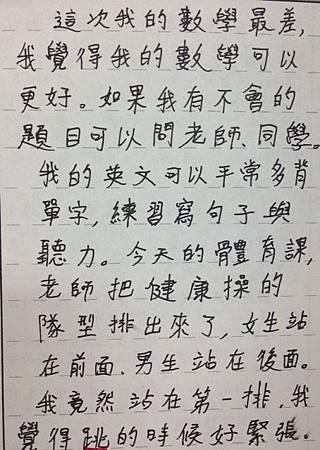 這次我的數學最差,
我覺得我的數學可以
更好。如果我有不會的
題目可以問老師、同學。
我的英文可以平常多背
單字,練習寫句子與
聽力。今天的體育課,
老師把健康操的
隊型排出來了,女生站
在前面、男生站在後面。
我竟然站在第一排,我
覺得跳的時候好緊張。